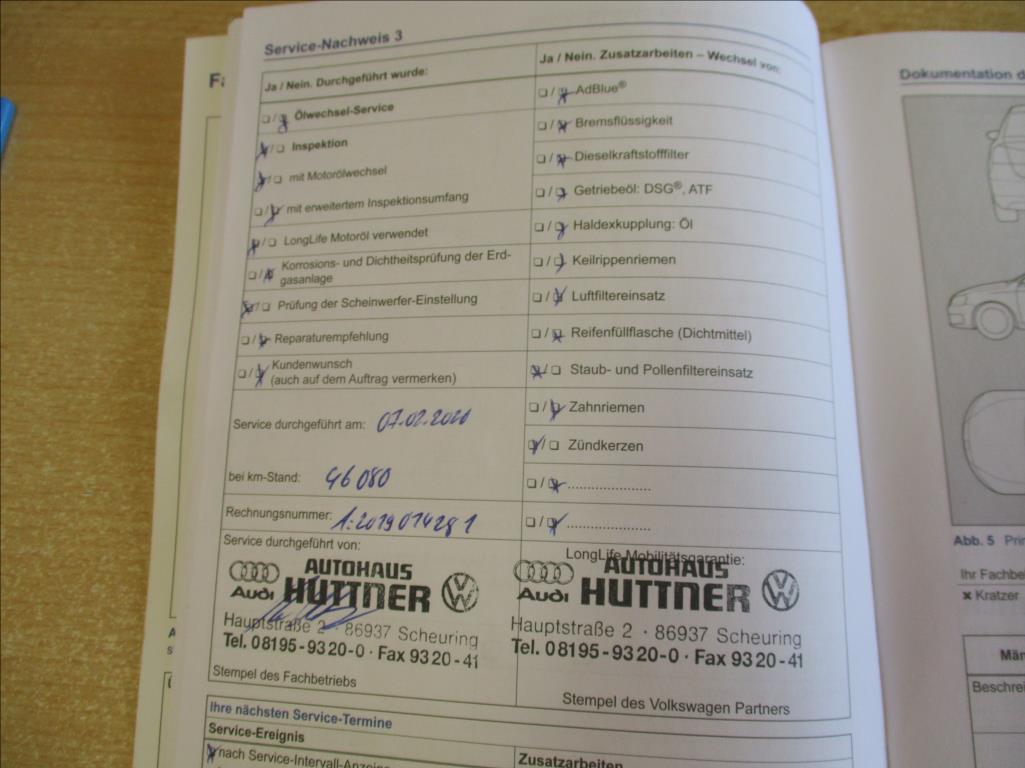 Service-Nachweis 3
Ja / Nein. Durchgeführt wurde:
Ölwechsel-Service
Inspektion
mit Motorölwechsel
mit erweitertem Inspektionsumfang
LongLife Motoröl verwendet
Korrosions- und Dichtheitsprüfung der Erd-
gasanlage
Prüfung der Scheinwerfer-Einstellung
Reparaturempfehlung
Kundenwunsch
(auch auf dem Auftrag vermerken)
Service durchgeführt am: 07.02.2020
bei km-Stand: 46080
Rechnungsnummer:
Service durchgeführt von:
AUTOHAUS
Audi HUTTNER
Hauptstraße 2 · 86937 Scheuring
Tel. 08195-9320-0 · Fax 9320-41
Stempel des Fachbetriebs
Ja / Nein. Zusatzarbeiten – Wechsel von:
AdBlue®
Bremsflüssigkeit
Dieselkraftstofffilter
Getriebeöl: DSG®, ATF
Haldexkupplung: Öl
Keilrippenriemen
Luftfiltereinsatz
Reifenfüllflasche (Dichtmittel)
Staub- und Pollenfiltereinsatz
Zahnriemen
Zündkerzen
LongLife Mobilitätsgarantie:
AUTOHAUS
Audi HUTTNER
Hauptstraße 2 · 86937 Scheuring
Tel. 08195-9320-0 · Fax 9320-41
Stempel des Volkswagen Partners
Ihre nächsten Service-Termine
Service-Ereignis
nach Service-Intervall-Anzeige
Zusatzarbeiten
Dokumentation d
Abb. 5 Prin
Ihr Fachbe
× Kratzer
Män
Beschrei